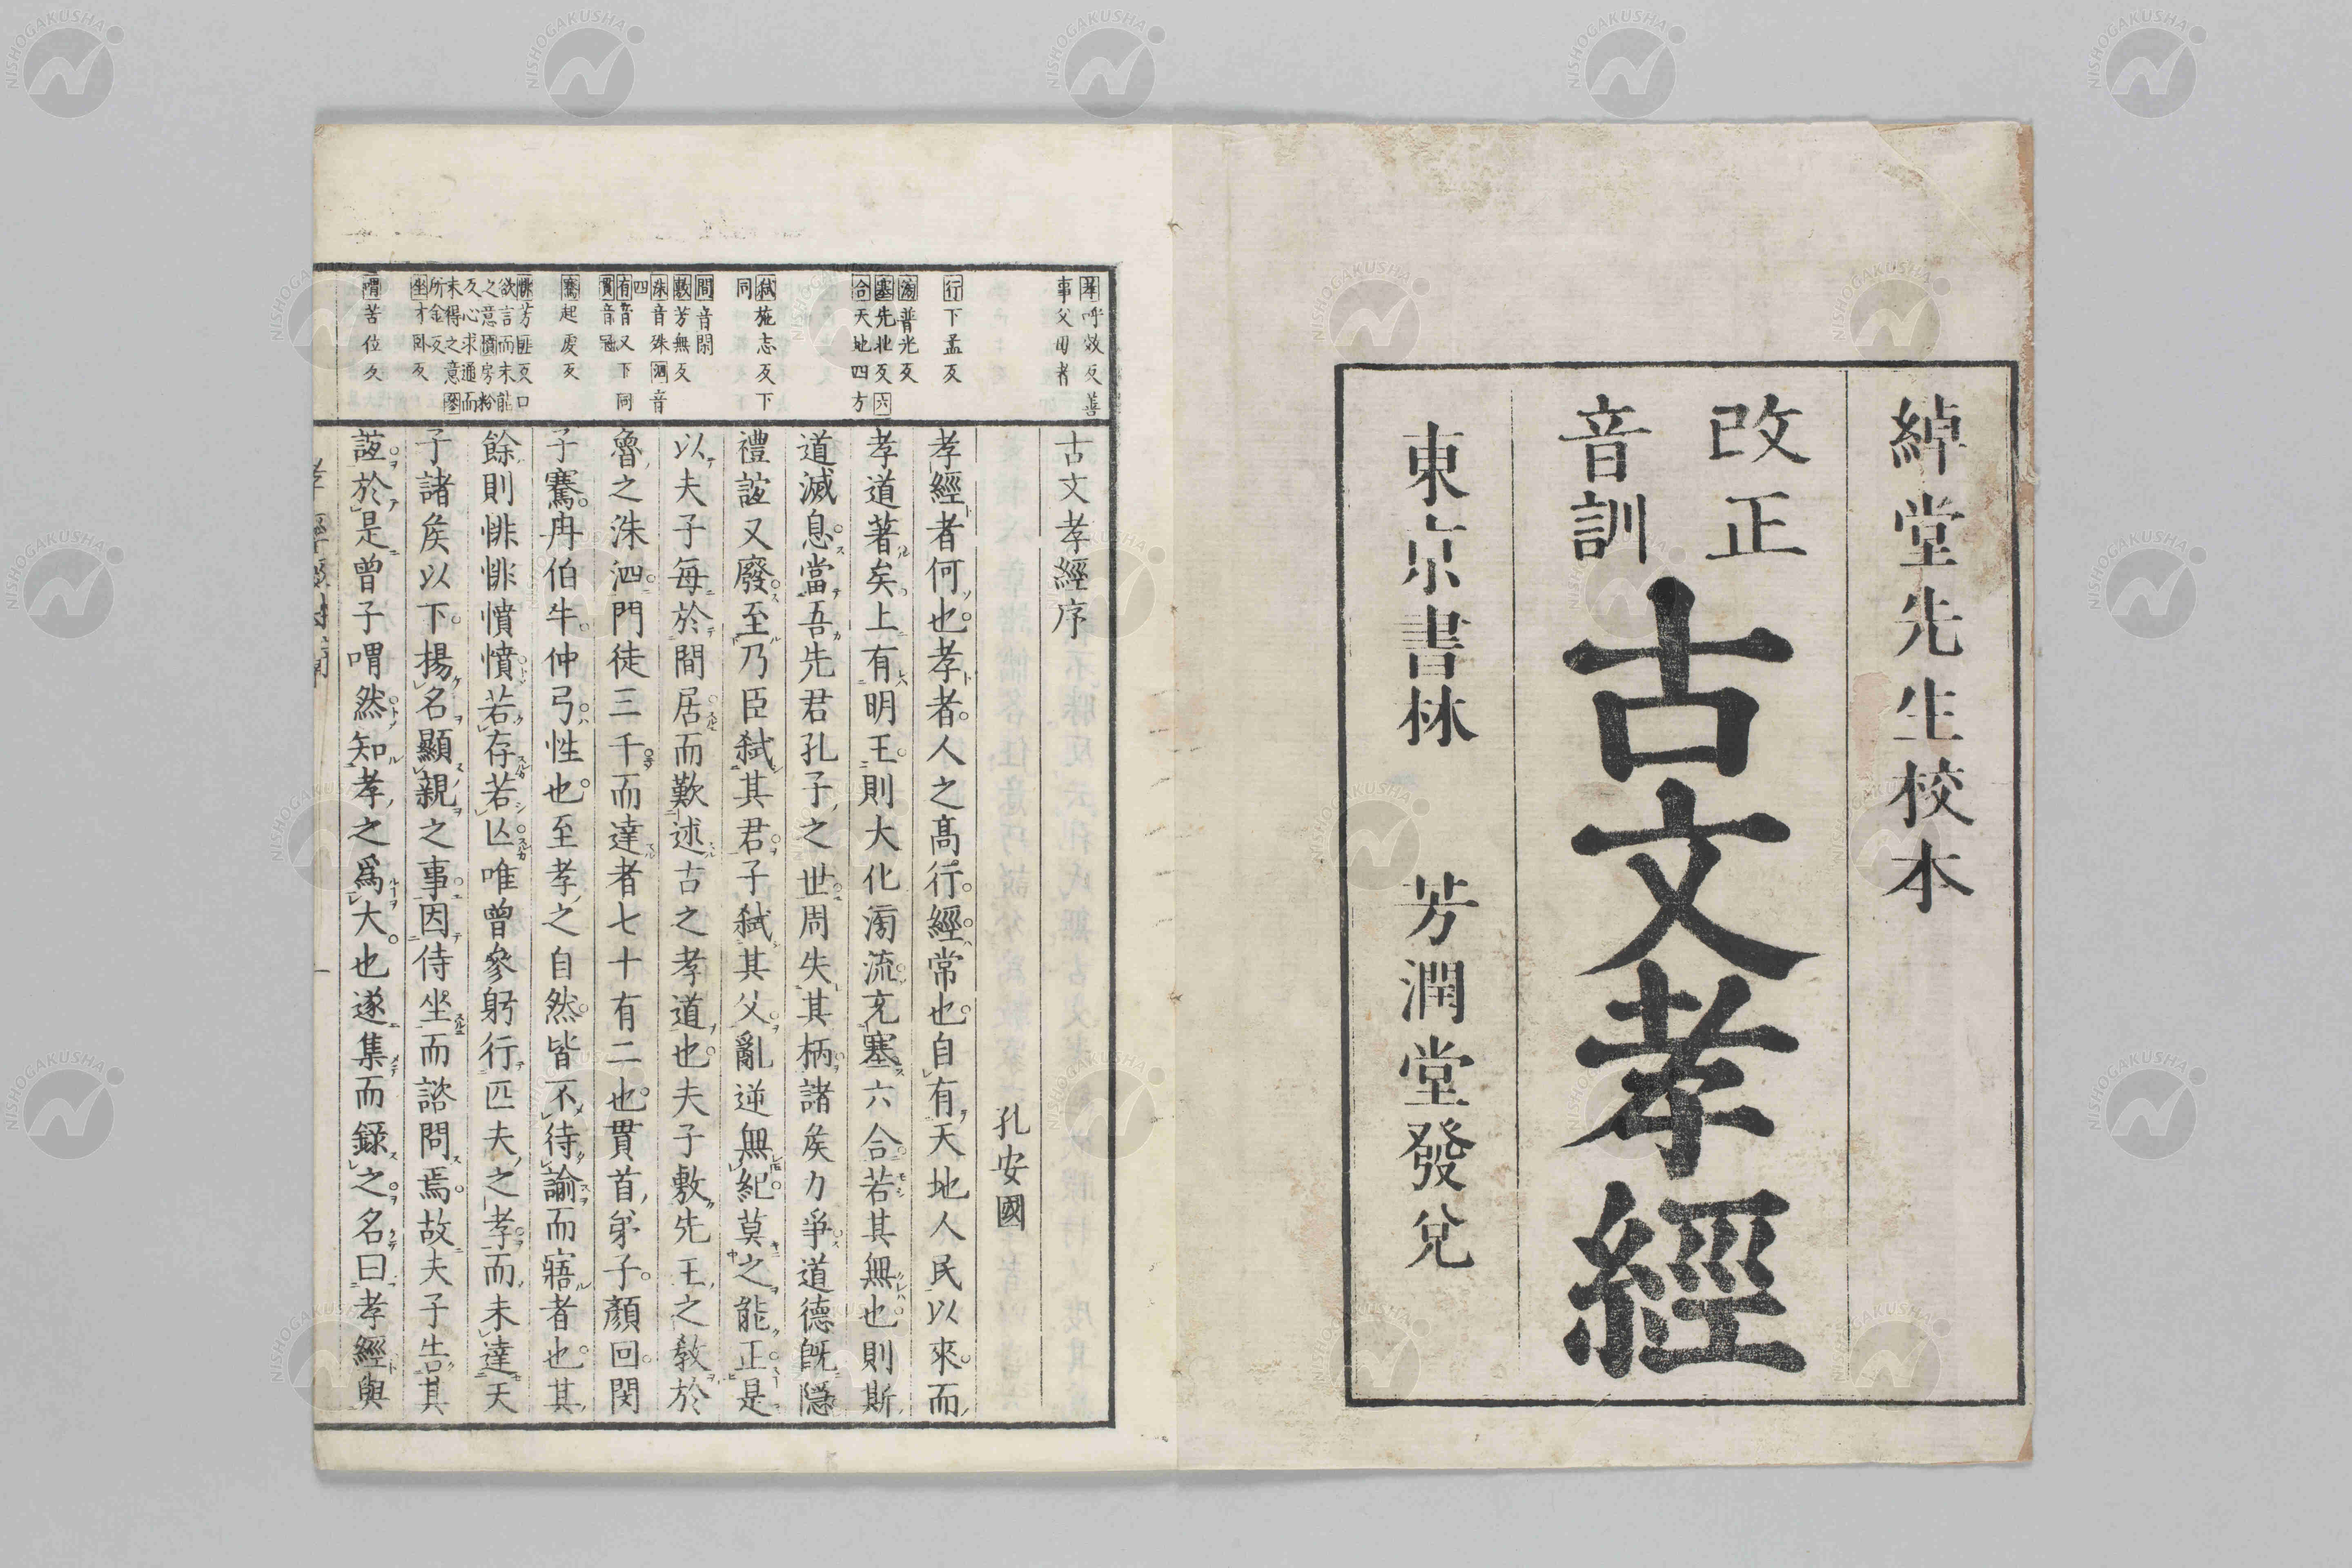 綽堂先生校本
改正
音訓
古文孝經
東京書林 芳潤堂發兌
孝呼效反善
事父母者
行下孟反
滂普光反
塞先北反六
合天地四方
弑施志反下
同
間音閑
敷芳無反
洙音殊泗音
四
冉音又下同
貫音冠
騫起虔反
悱芳匪反口
欲言而未能
之意憤房粉
反心求通而
未得之意參
所金反
坐才臥反
喟苦位反
古文孝經序
孔安國
孝經者何也孝者人之高行經常也自有天地人民以來而
孝道著矣上有明王則大化滂流充塞六合若其無也則斯
道滅息當吾先君孔子之世周失其柄諸矦力爭道德既隱
禮誼又廢至乃臣弑其君子弑其父亂逆無紀莫之能正是
以夫子每於間居而歎述古之孝道也夫子敷先王之教於
魯之洙泗門徒三千而達者七十有二也貫首弟子顏回閔
子騫冉伯牛仲弓性也至孝之自然皆不待諭而寤者也其
餘則悱悱憤憤若存若亾唯曾參躬行匹夫之孝而未達天
子諸矦以下揚名顯親之事因侍坐而諮問焉故夫子告其
誼於是曾子喟然知孝之爲大也遂集而錄之名曰孝經與